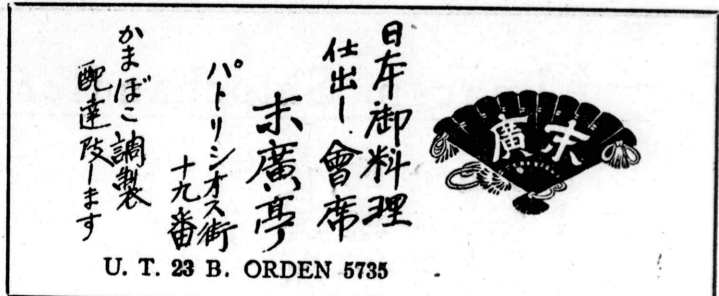 末廣
日本御料理
仕出し 會席
末廣亭
パトリシオス街
十九番
かまぼこ調製
配達致します
U. T. 23 B. ORDEN 5735